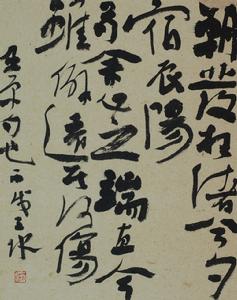 朝發枉渚兮夕
宿辰陽
苟余心之端直兮
雖僻遠其何傷
屈原句也